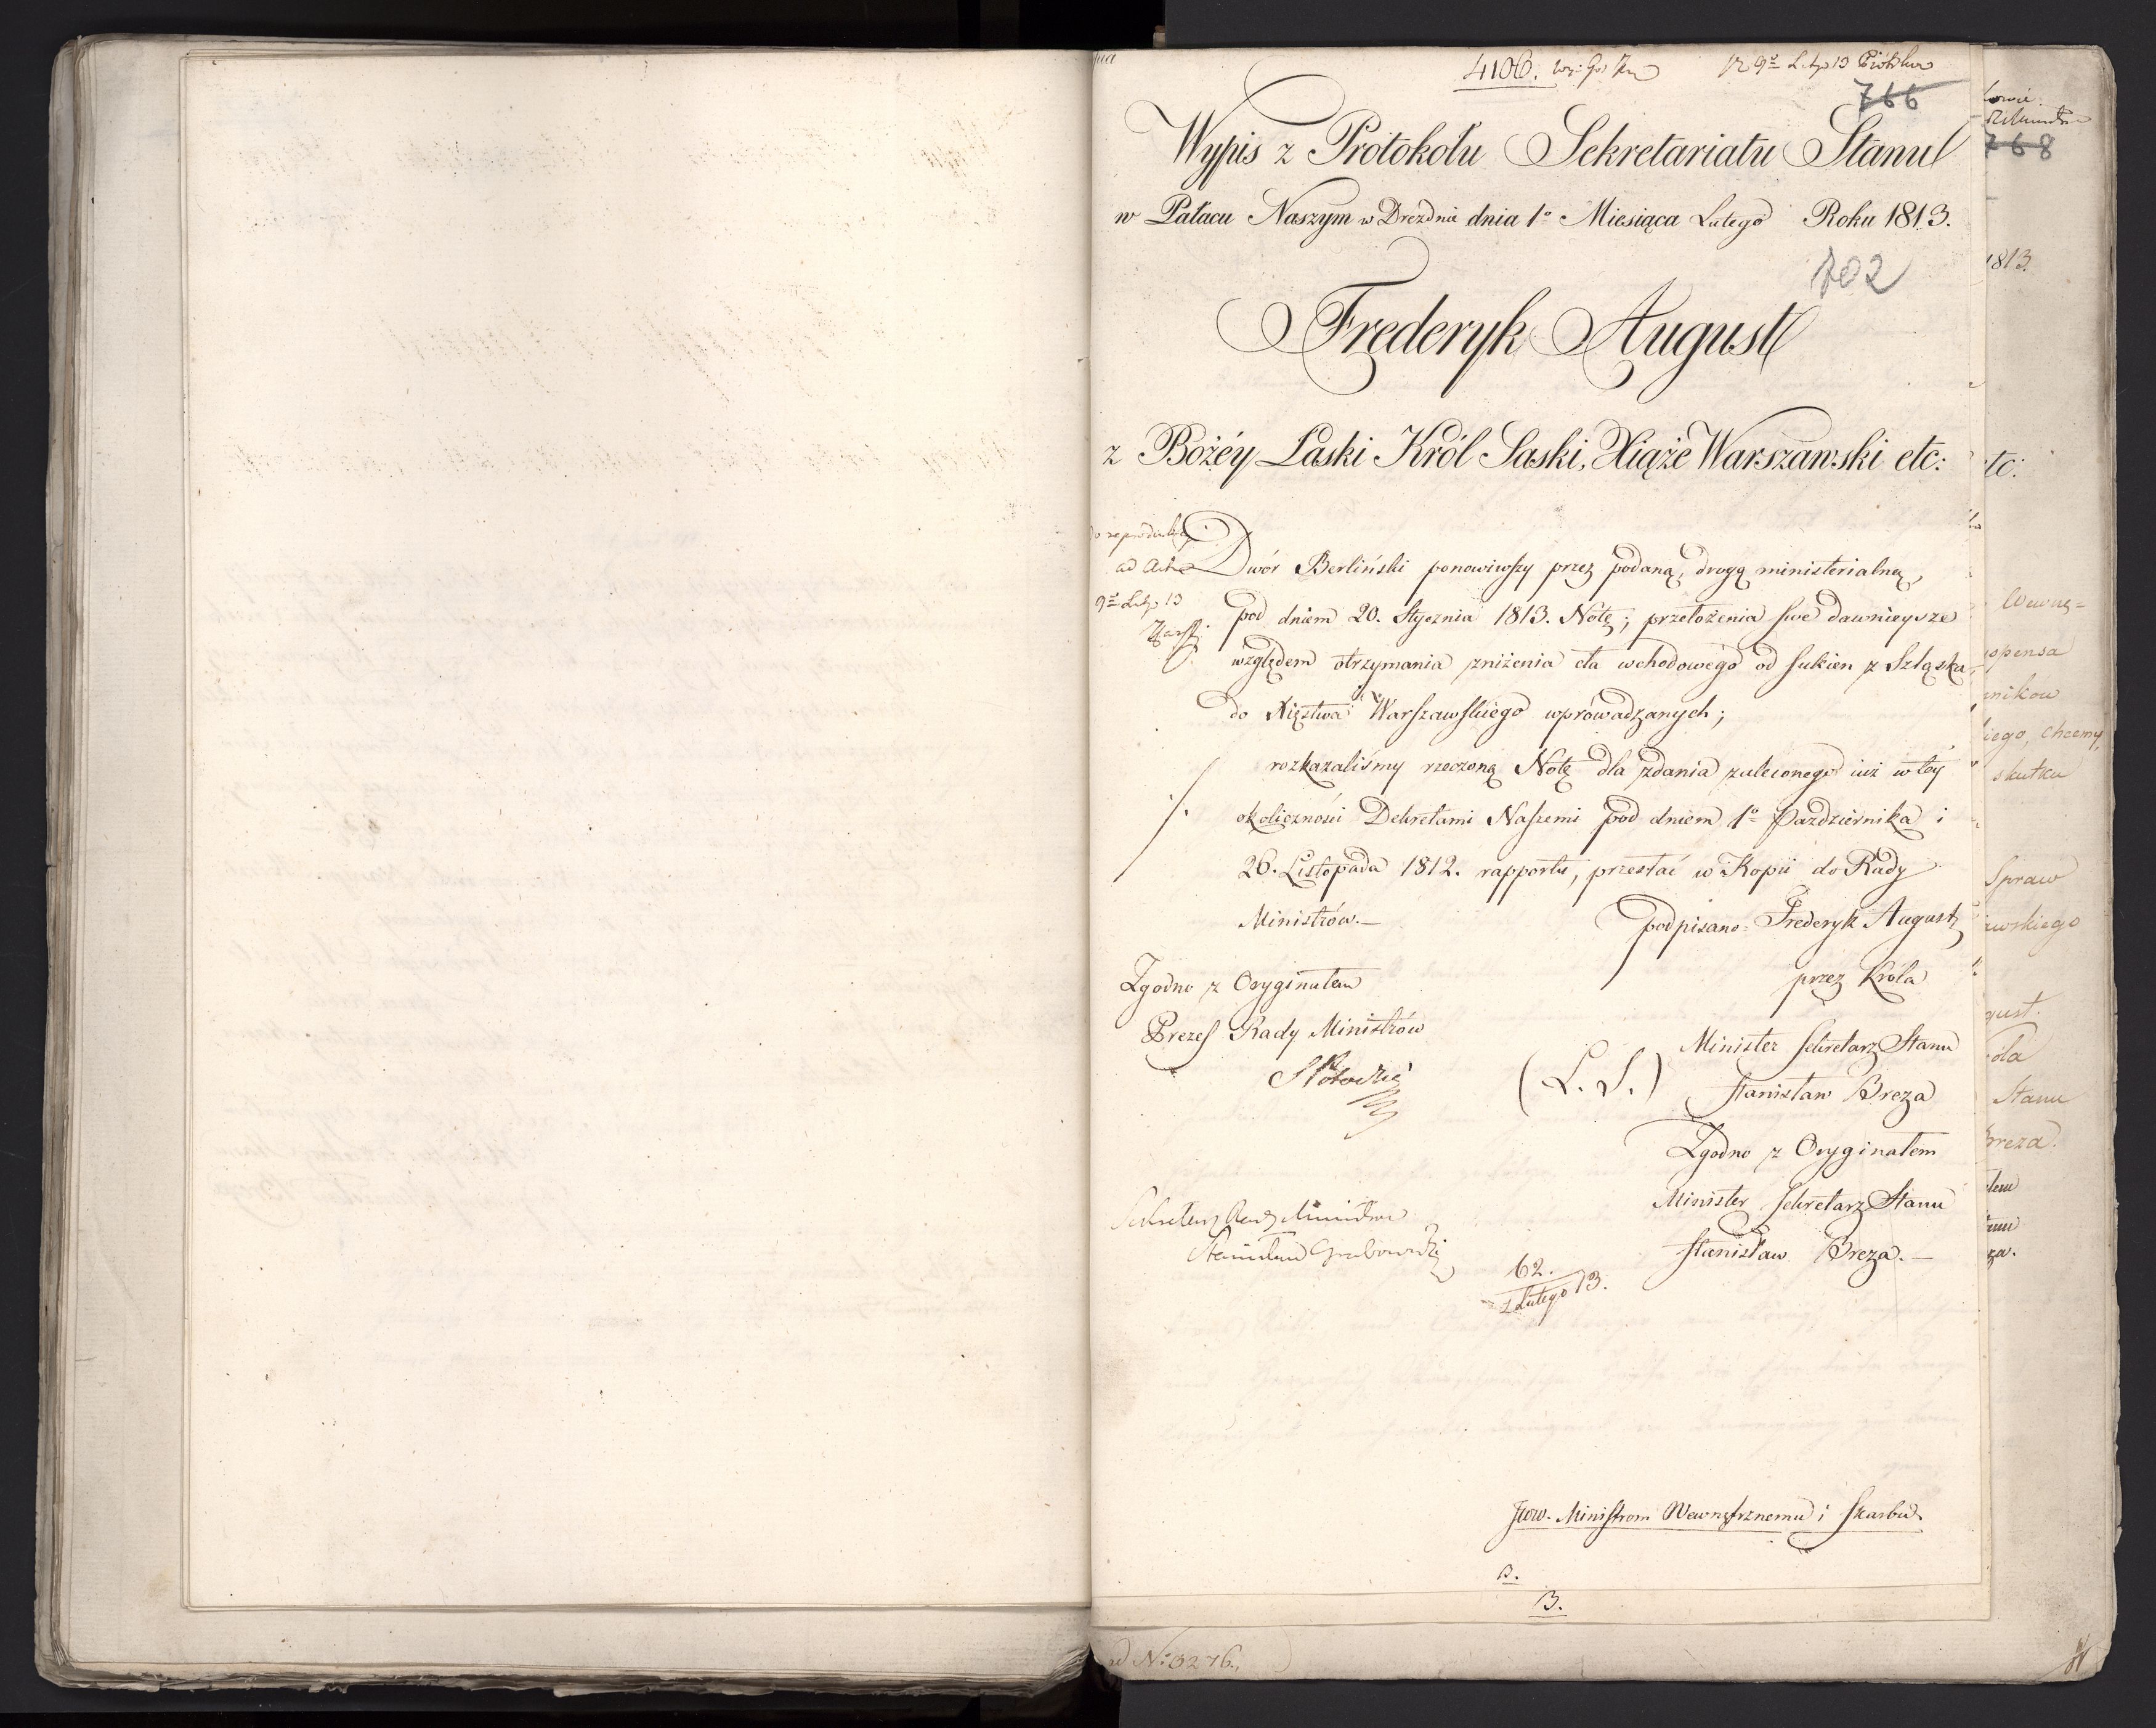 4106.
766
Wypis z Protokołu Sekretariatu Stanu
w Pałacu Naszym w Dreznie dnia 1o Miesiąca Lutego Roku 1813.
702
Frederyk August
z Bożéy Łaski Król Saski, Xiąże Warszawski etc:
Dwór Berliński ponowiwszy przez podaną, drogą ministerialną,
pod dniem 20. Stycznia 1813. Notę; przełożenia swe dawnieysze
względem otrzymania zniżenia cła wchodowego od sukien z Szląska
do Xięstwa Warszawskiego wprowadzanych;
rozkazaliśmy rzeczoną Notę dla zdania zaleconego iuż w tey
okoliczności Dekretami Naszemi pod dniem 1o Pazdziernika i
26. Listopada 1812. rapportu, przesłać w Kopii do Rady
Ministrów.—
podpisano: Frederyk August
przez Króla
Zgodno z Oryginałem
Prezes Rady Ministrów
Minister Sekretarz Stanu
(L. S.) Stanisław Breza
Zgodno z Oryginałem
Minister Sekretarz Stanu
Stanisław Breza.—
Sekretarz Rady Ministrów
Stanisław Grabowski
62.
Lutego 13.
Ministrom Wewnętrznemu i Skarbu
B.
ad No 3276.
768
1813.
etc:
Wewnę=
chcemy,
skutku
Spraw
Stanu